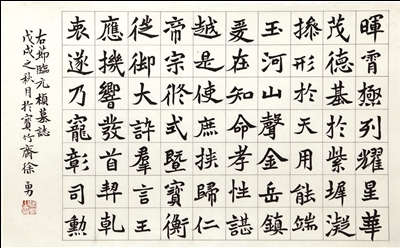 暉霄極列耀星華
茂德基於紫墀凝
形於天用能端
玉河山聲金岳鎮
爰在知命孝性諶
越是使庶挾歸仁
帝宗修式暨寶衡
從御大許羣言王
應機響發首契乹
衷遂乃寵彰司勳
右節臨元楨墓誌
戊戌之秋月於寶竹齋徐勇